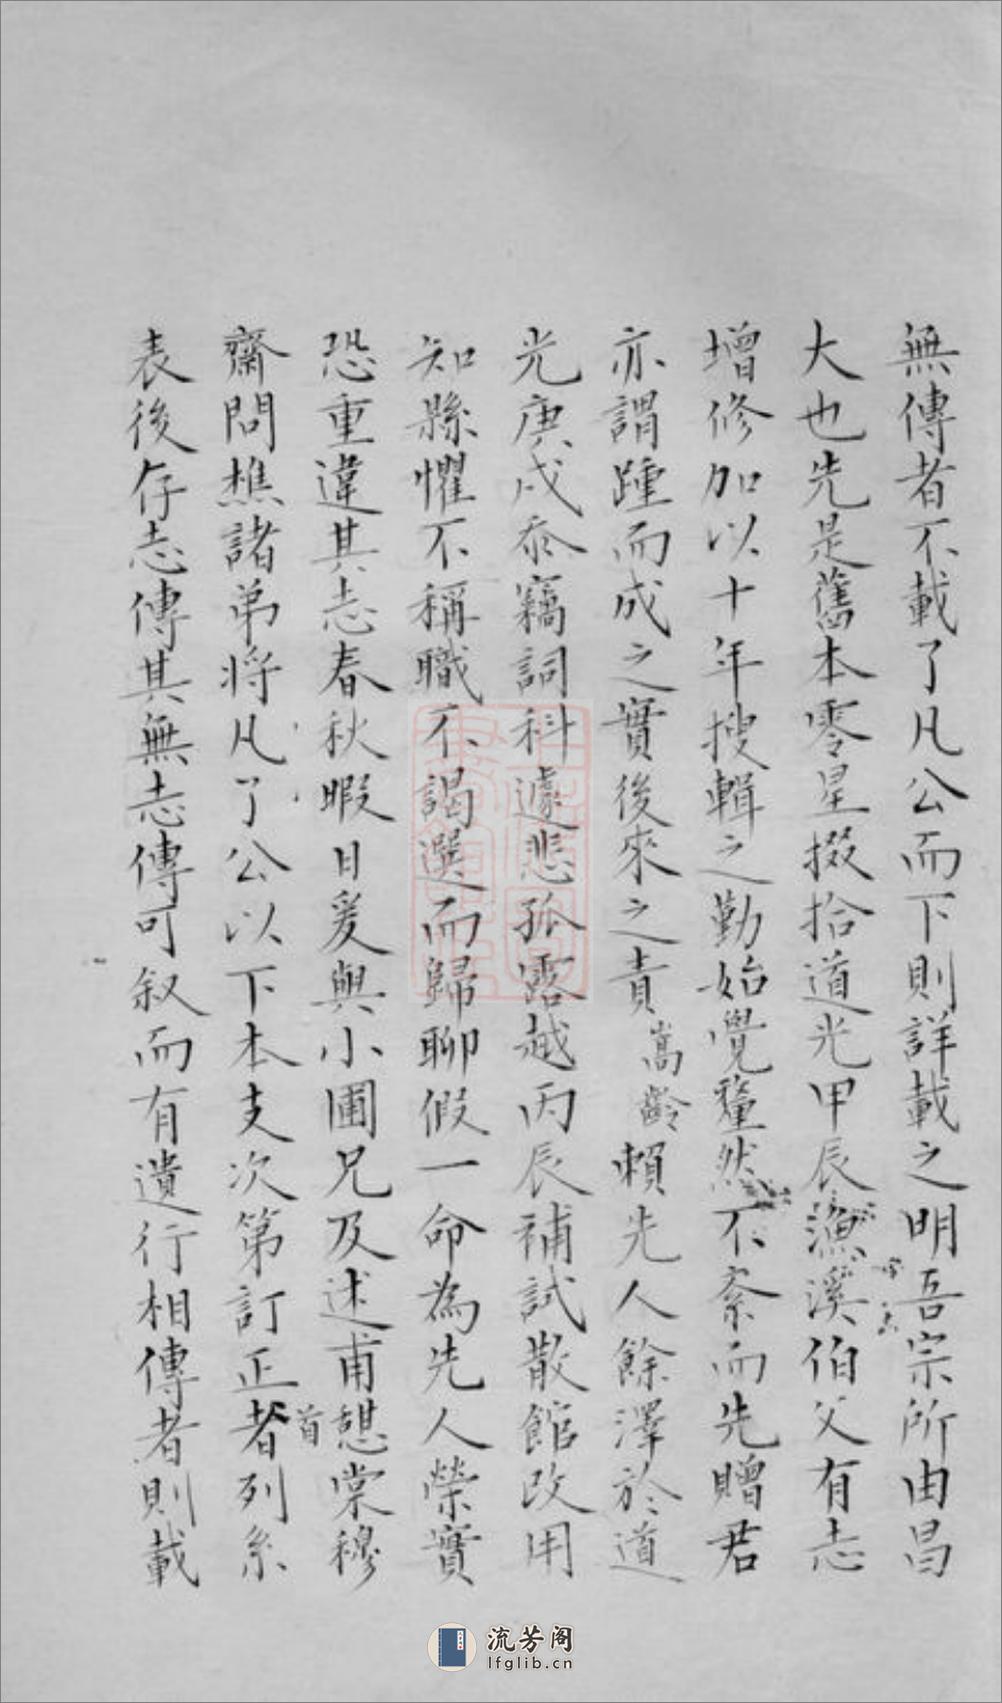 無傳者不載了凡公而下則詳載之明吾宗所由昌
大也先是舊本零星掇拾道光甲辰漁溪伯父有志
增修加以十年搜輯之勤始覺釐然不紊而先贈君
亦謂踵而成之實後來之責嵩齡賴先人餘澤於道
光庚戌忝竊詞科遽悲孤露越丙辰補試散館改用
知縣懼不稱職不謁選而歸聊假一命為先人榮實
恐重違其志春秋暇日爰與小圃兄及述甫憇棠穆
齋問樵諸弟將凡了公以下本支次第訂正者首列系
表後存志傳其無志傳可叙而有遺行相傳者則載
流芳阁
lfglib.cn